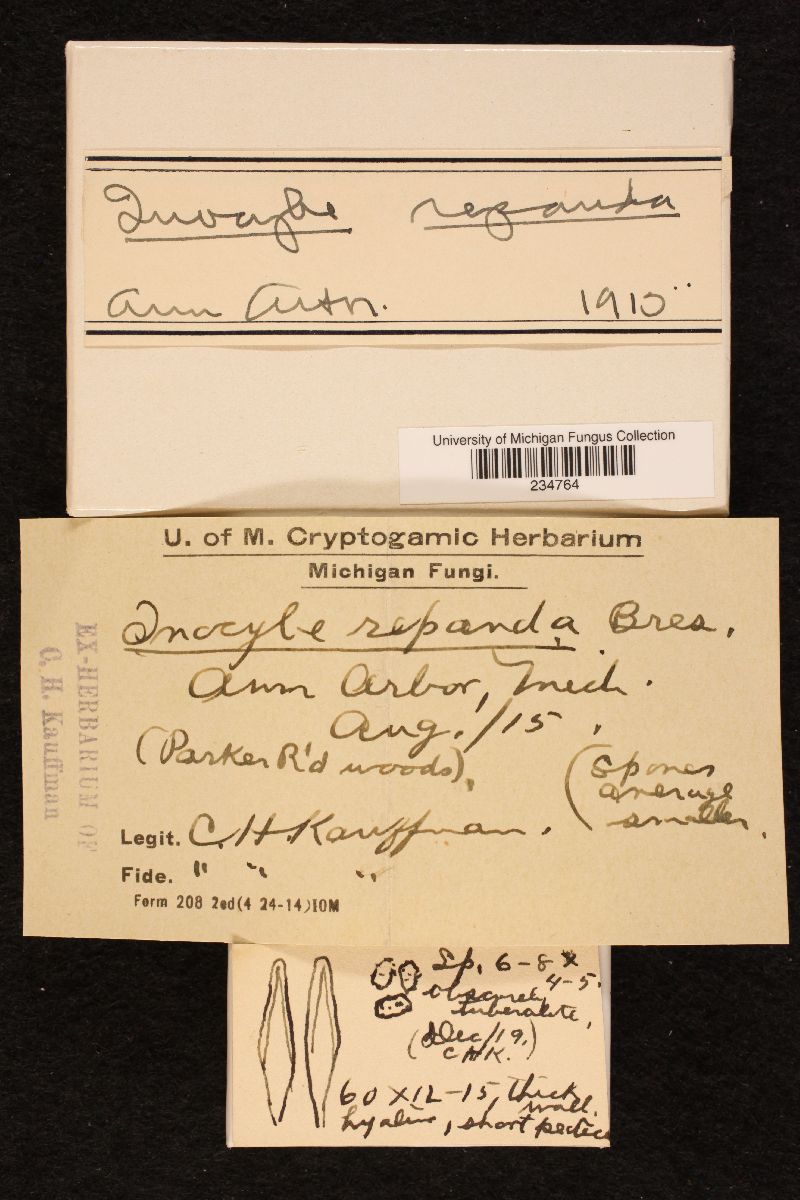 Inocybe repanda
Ann Arbor. 1915
University of Michigan Fungus Collection
234764
U. of M. Cryptogamic Herbarium
Michigan Fungi.
Inocybe repanda Bres.
Ann Arbor, Mich.
Aug./15.
(Parker R'd woods),
(Spores
average
smaller.
Legit. C.H.Kauffman.
Fide. " " "
Form 208 2ed(4 24-14)10M
EX-HERBARIUM OF
C. H. Kauffman
Sp. 6-8 x
4-5.
obscurely
tuberculate,
(Dec/19.)
CHK.
60 x 12-15, thick
wall.
hyaline, short